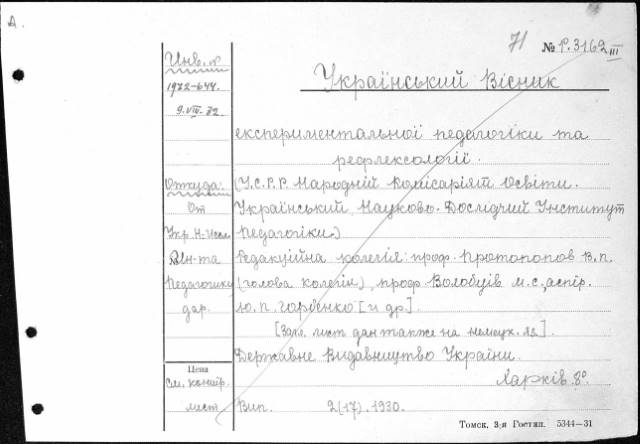 А.
71 № Р.3162 III
Український Вісник
експериментальної педагогіки та
рефлексології.
(У.С.Р.Р. Народній Комісаріят Освіти.
Український Науково-Дослідчий Інститут
Педагогіки)
Редакційна колегія: проф. Протопопов В.П.
(голова колегія), проф. Волобуїв М.С., аспір.
Ю.П. Гарбенко [и др.]
[Загл. лист дан также на немецк. яз].
Державне Видавництво України.
Харків. 8°.
Вип. 2(17). 1930.
Инв. №
1972-644.
9.VIII.32
Откуда:
От
Укр. Н-Иссл
Ин-та
Педагогики
дар.
Цена
См. контр.
лист
Томск, 3-я Гостип. 5344—31